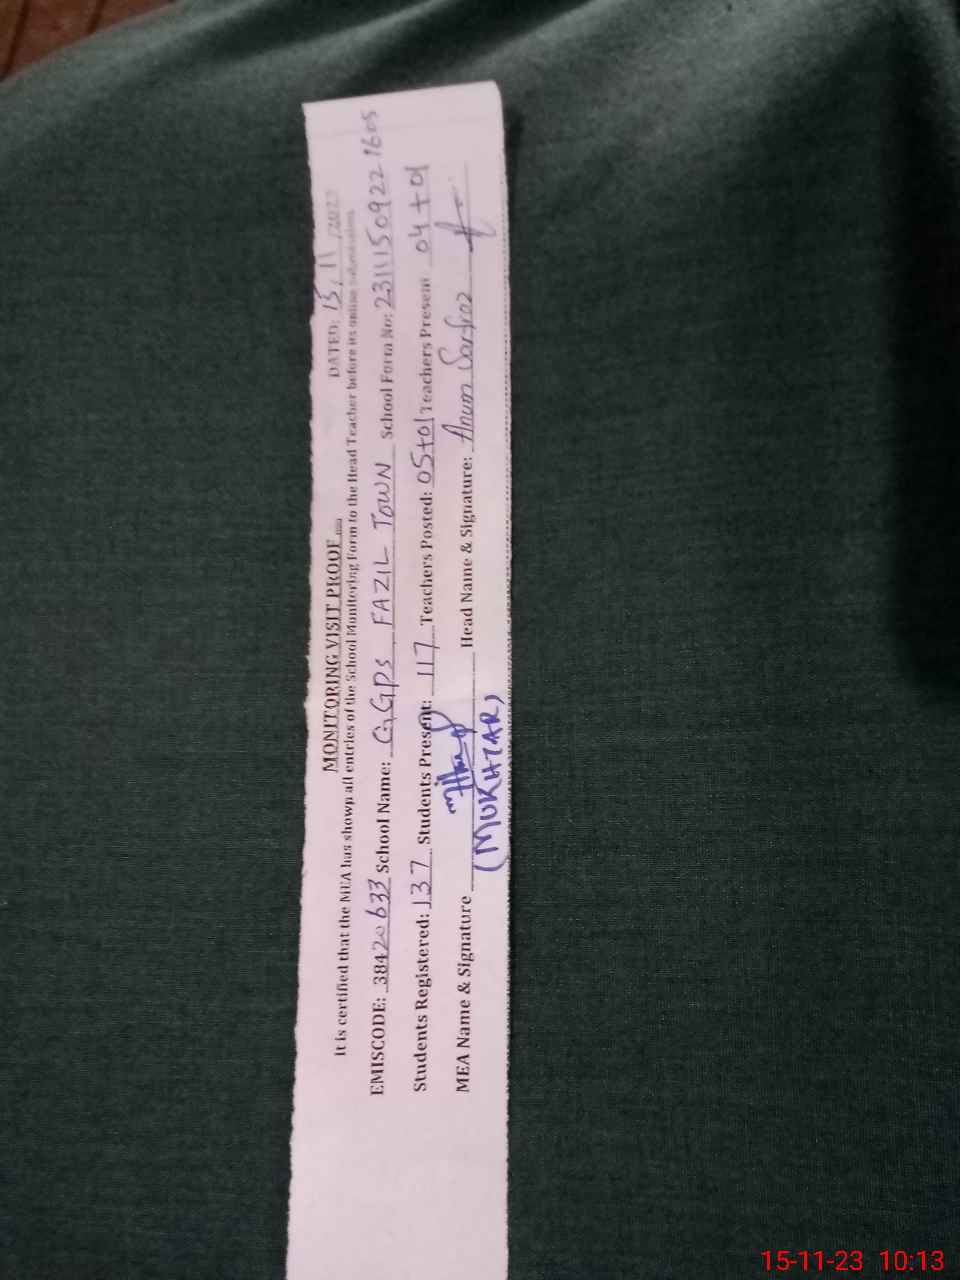 MONITORING VISIT PROOF DATED: 15/11/2023
It is certified that the MEA has shown all entries of the School Monitoring Form to the Head Teacher before its online submission.
EMISCODE: 38420633 School Name: GGPS FAZIL TOWN School Form No: 231115092216os
Students Registered: 137 Students Present: 117 Teachers Posted: 05+01 Teachers Present 04+01
MEA Name & Signature Head Name & Signature: Anum Sarfraz
(MUKHTAR)
15-11-23 10:13